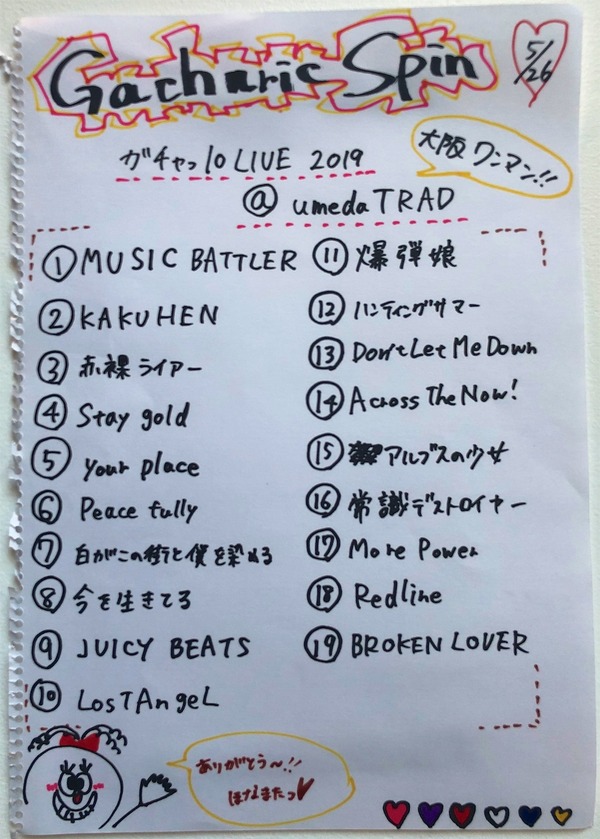 Gacharic Spin
5/26
ガチャっ10 LIVE 2019
大阪ワンマン!!
@ umeda TRAD
① MUSIC BATTLER
② KAKUHEN
③ 赤裸ライアー
④ Stay gold
⑤ your place
⑥ Peace fully
⑦ 白がこの街と僕を染める
⑧ 今を生きてる
⑨ JUICY BEATS
⑩ LosT AngeL
⑪ 爆弾娘
⑫ ハンティングサマー
⑬ Don't Let Me Down
⑭ Across The Now!
⑮ アルブスの少女
⑯ 常識デストロイヤー
⑰ More Power
⑱ Redline
⑲ BROKEN LOVER
ありがとう〜!!
ほなまたっ